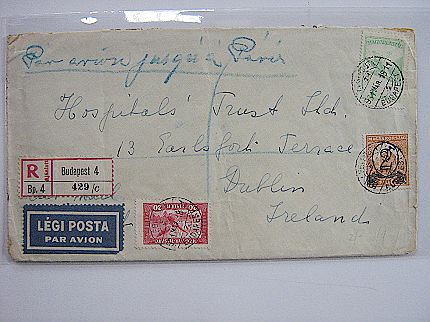 Par avion jusqu'à Paris
Hospitals' Trust Ltd.
13 Earlsfort Terrace
Dublin
Ireland
R
Budapest 4
Bp. 4
429/c
LÉGI POSTA
PAR AVION
MAGYARORSZÁG